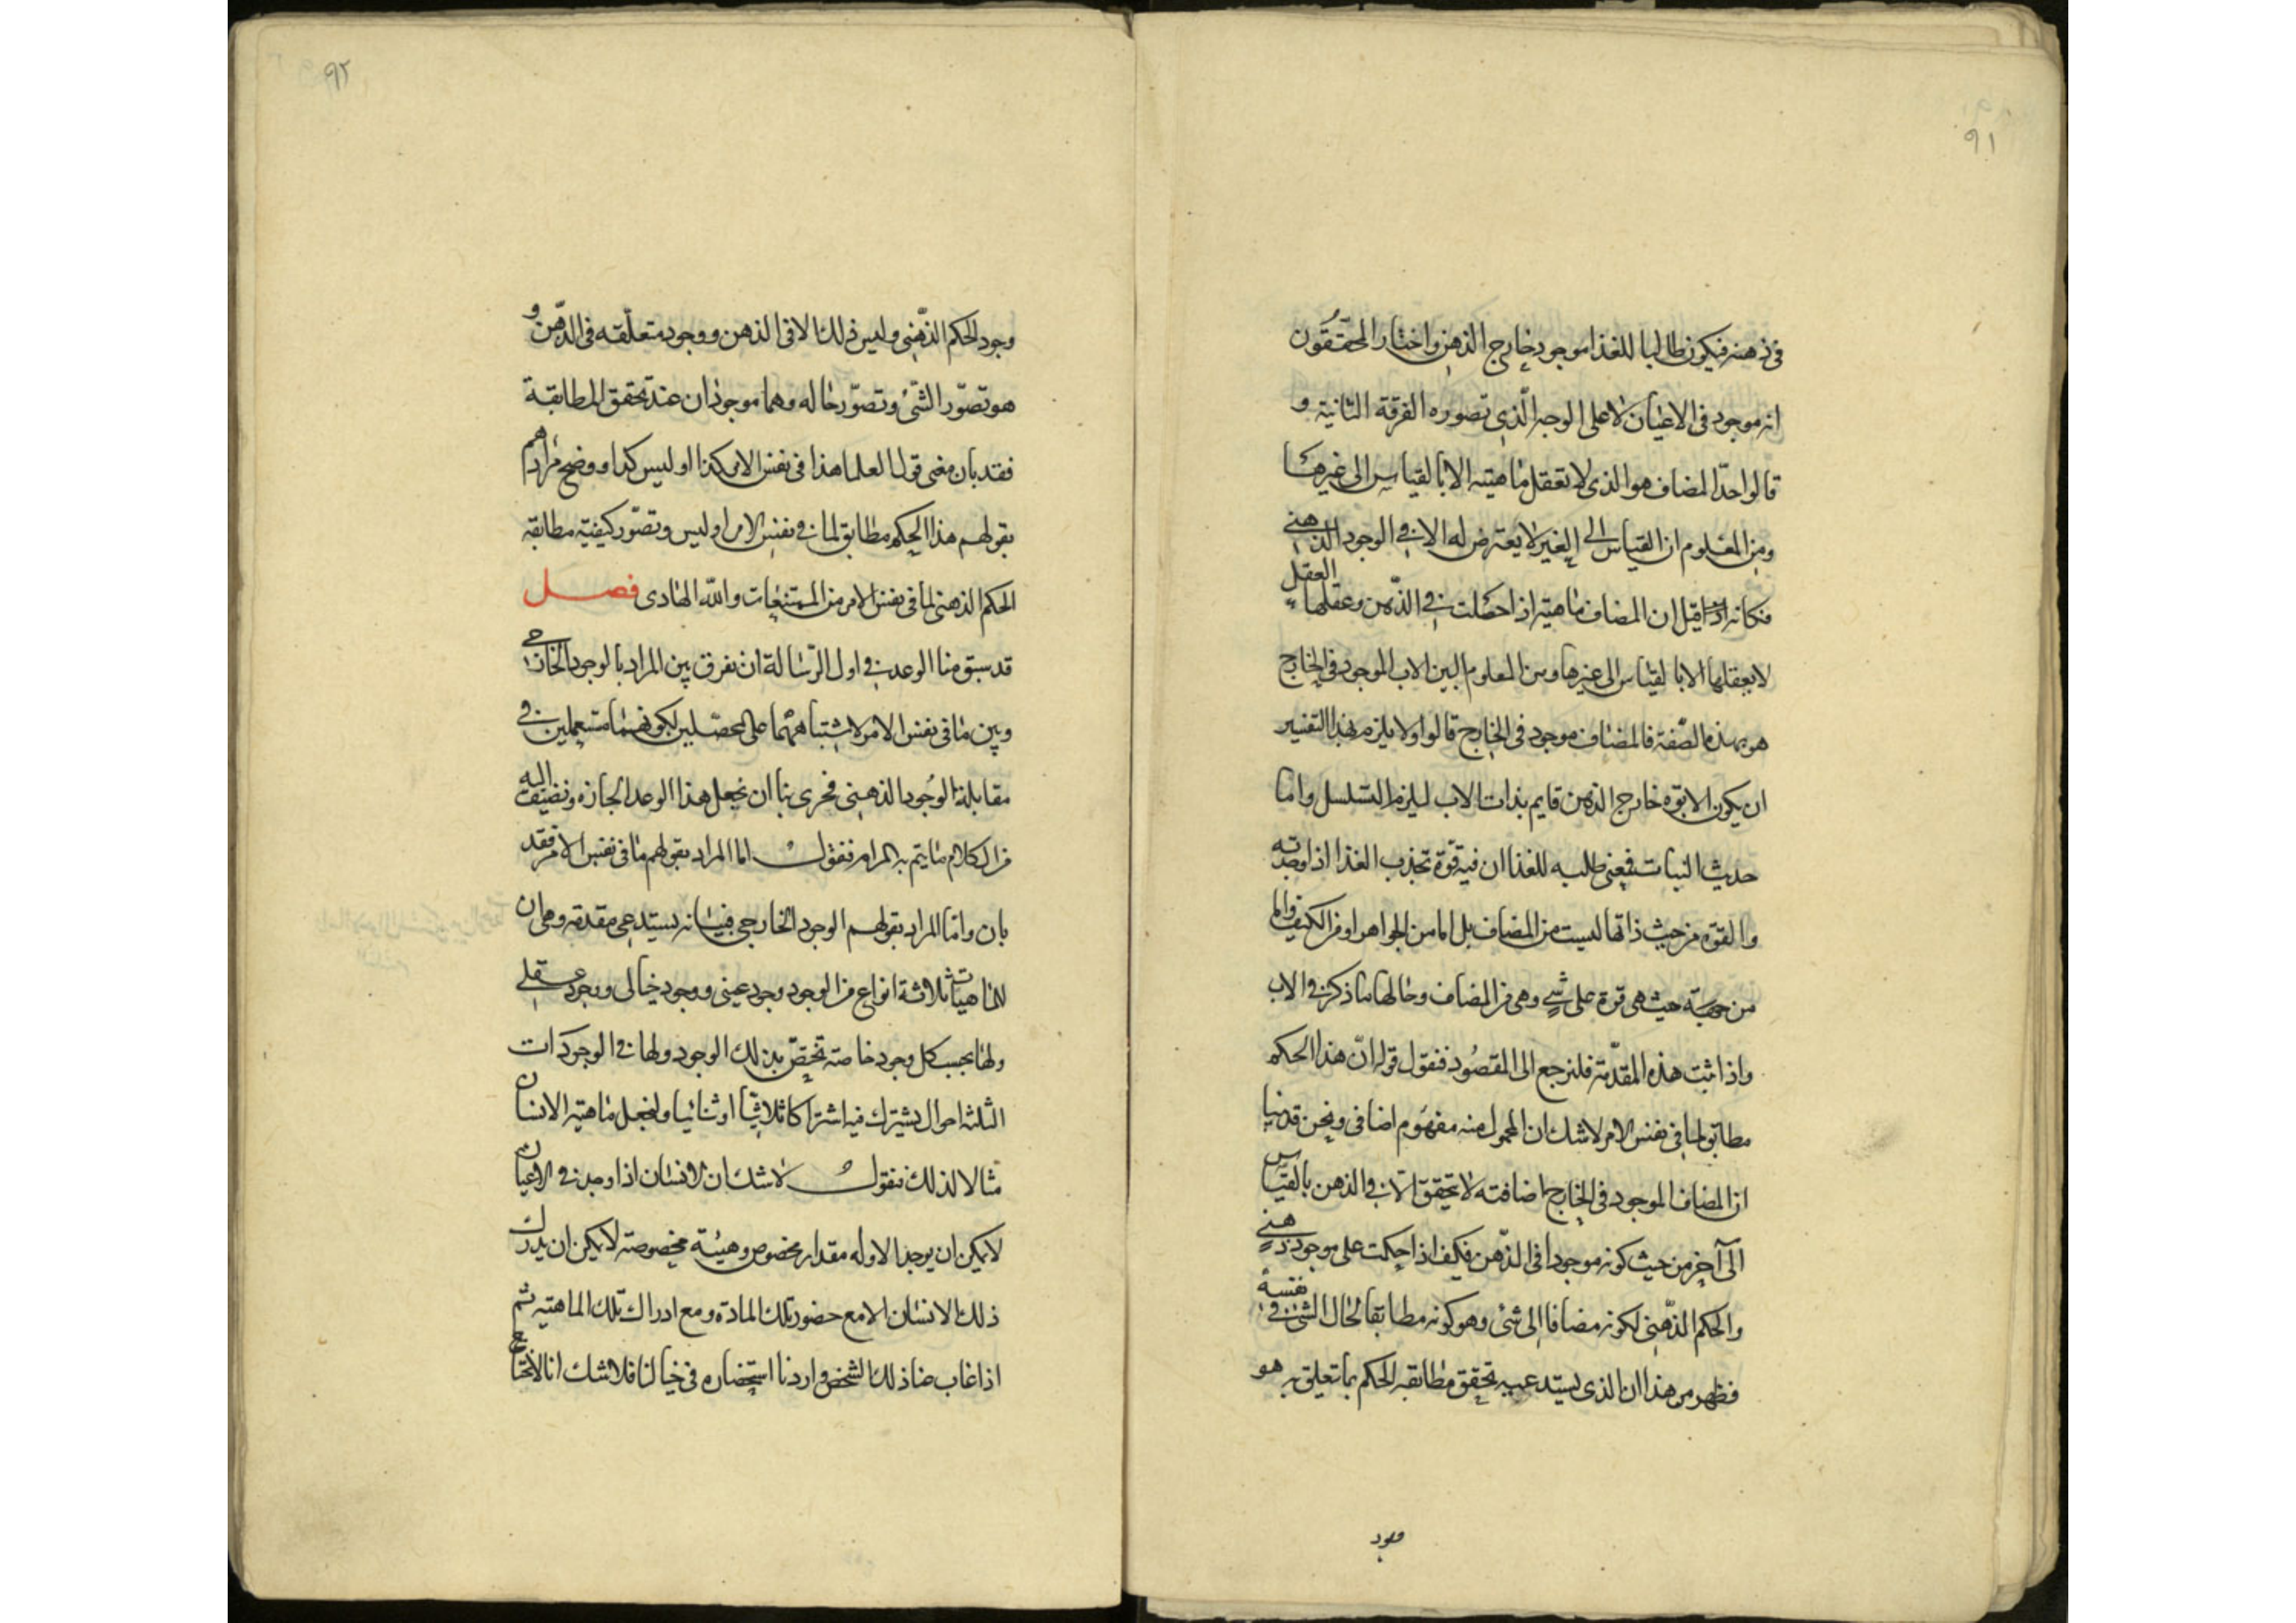 ٩١
فی ذهنه فیکون طالبا للغذا موجود خارج الذهن واختار المحققون
انه موجود فی الاعیان لا علی الوجه الّذی تصوره الفرقة الثانیة و
قالوا حدّ المضاف هو الذی لا تعقل ماهیته الا بالقیاس الی غیرها
ومن المعلوم ان القیاس الی الغیر لا یعترض له الا فی الوجود الذهنی
فکانه اذا قیل ان المضاف ماهیته اذا حصلت فی الذّهن وعقلها العقل
لا یعقلها الا بالقیاس الی غیرها ومن المعلوم البین الاب الموجود فی الخارج
هو بهذه الصّفة فالمضاف موجود فی الخارج قالوا ولا یلزم بهذا التفسیر
ان یکون الابوّه خارج الذهن قایم بذات الاب لیلزم التسلسل واما
حدیث النبات فیعنی طلبه للغذا ان فیه قوّة تجذب الغذا اذا وجدته
والقوّه من حیث ذاتها لیست من المضاف بل اما من الجواهر او من الکیف واما
من جهة حیث هی قوة علی شی وهی من المضاف وحالها ما ذکر فی الاب
واذا ثبت هذه المقدّمة فلنرجع الی المقصُود فنقول قوله انّ هذا الحکم
مطابق لما فی نفس الامر لاشک ان المحمول منه مفهوم اضافی ونحن قد بینا
ان المضاف الموجود فی الخارج اضافته لا تحقق الا فی الذهن بالقیاس
الی آخر من حیث کونه موجودا فی الذّهن فکیف اذا حکمت علی موجود ذهنی
والحکم الذّهنی لکونه مضافا الی شئ وهو کونه مطابقا لحال الشئ فی نفسه
فظهر من هذا ان الذی یستدعیه تحقق مطابقه الحکم بما تعلق به هو
وجود
٩٢
وجود الحکم الذّهنی ولیس ذلک الا فی الذهن ووجود متعلّقه فی الذّهن و
هو تصوّر الشّئ وتصوّر حاله وهما موجودان عند تحقق المطابقة
فقد بان معنی قول العلما هذا فی نفس الامر کذا او لیس کذا ووضح مرادهم
بقولهم هذا الحکم مطابق لما فی نفس الامر او لیس وتصّور کیفیّة مطابقه
الحکم الذهنی لما فی نفس الامر من الممتنعات والله الهادی فصل
قد سبق منا الوعد فی اول الرّسالة ان نفرق بین المراد بالوجود الخارجی
وبین ما فی نفس الامر لاشتباههما علی المحصّلین لکونهما مستعملین فی
مقابلة الوُجود الذهنی فحری بنا ان نجعل هذا الوعد انجازه ونضیف الیه
من الکلام ما یتم به المرام فنقول اما المراد بقولهم ما فی نفس الامر فقد
بان واما المراد بقولهم الوجود الخارجی فبیانه یستدعی مقدمة وهی ان
للماهیات ثلاثة انواع من الوجود وجود عینی ووجود خیالی ووجود عقلی
ولها بحسب کل وجود خاصّة تختصّ بذلک الوجود ولها فی الوجودات
الثلثه احوال یشترک فیه اشتراکا ثلاثیّا او ثنائیا ولنجعل ماهیته الانسان
مثالا لذلک فنقول لاشک ان الانسان اذا وجد فی الاعیان
لا یمکن ان یوجد الا وله مقدار مخصوص وهیئة مخصوصة لا یمکن ان یدرک
ذلک الانسان الا مع حضور تلک المادّه ومع ادراک تلک الماهیّة ثم
اذا غاب عنا ذلک الشخص واردنا استحضاره فی خیالنا فلا شک انا لا نحتاج